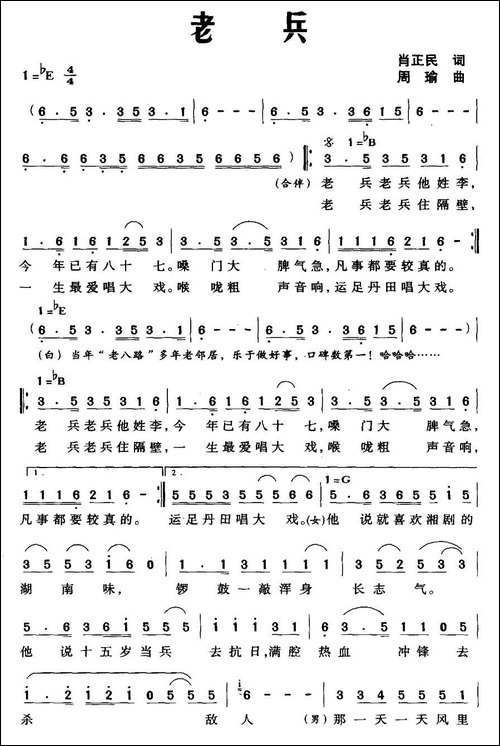 老兵
肖正民 词
1=♭E 4/4
周瑜 曲
(6.53.353.1 6--- 6.53.3615 6---
6.66356635663566656) 1=♭B 3.535316
(合伴) 老兵老兵他姓李,
老兵老兵住隔壁,
1.6161253 3.53.5316 1116216-
今年已有八十七。嗓门大脾气急,凡事都要较真的。
一生最爱唱大戏。喉咙粗声音响,运足丹田唱大戏。
1=♭E
6.53.353.1 6--- 6.53.3615 6---
(白) 当年“老八路”多年老邻居,乐于做好事,口碑数第一!哈哈哈……
1=♭B
3.535316 1.6161253 3.53.5316
老兵老兵他姓李,今年已有八十七,嗓门大脾气急,
老兵老兵住隔壁,一生最爱唱大戏,喉咙粗声音响,
1. 2. 1=G
1116216- 5553535566 5.6365515
凡事都要较真的。运足丹田唱大戏。(女)他说就喜欢湘剧的
3553160 1.131111 3553---
湖南味,锣鼓一敲浑身长志气。
5.6361555 11131 6.1653335
他说十五岁当兵去抗日,满腔热血冲锋去
1.21210555 6-- 3345511
杀敌人(男)那一天一天风里